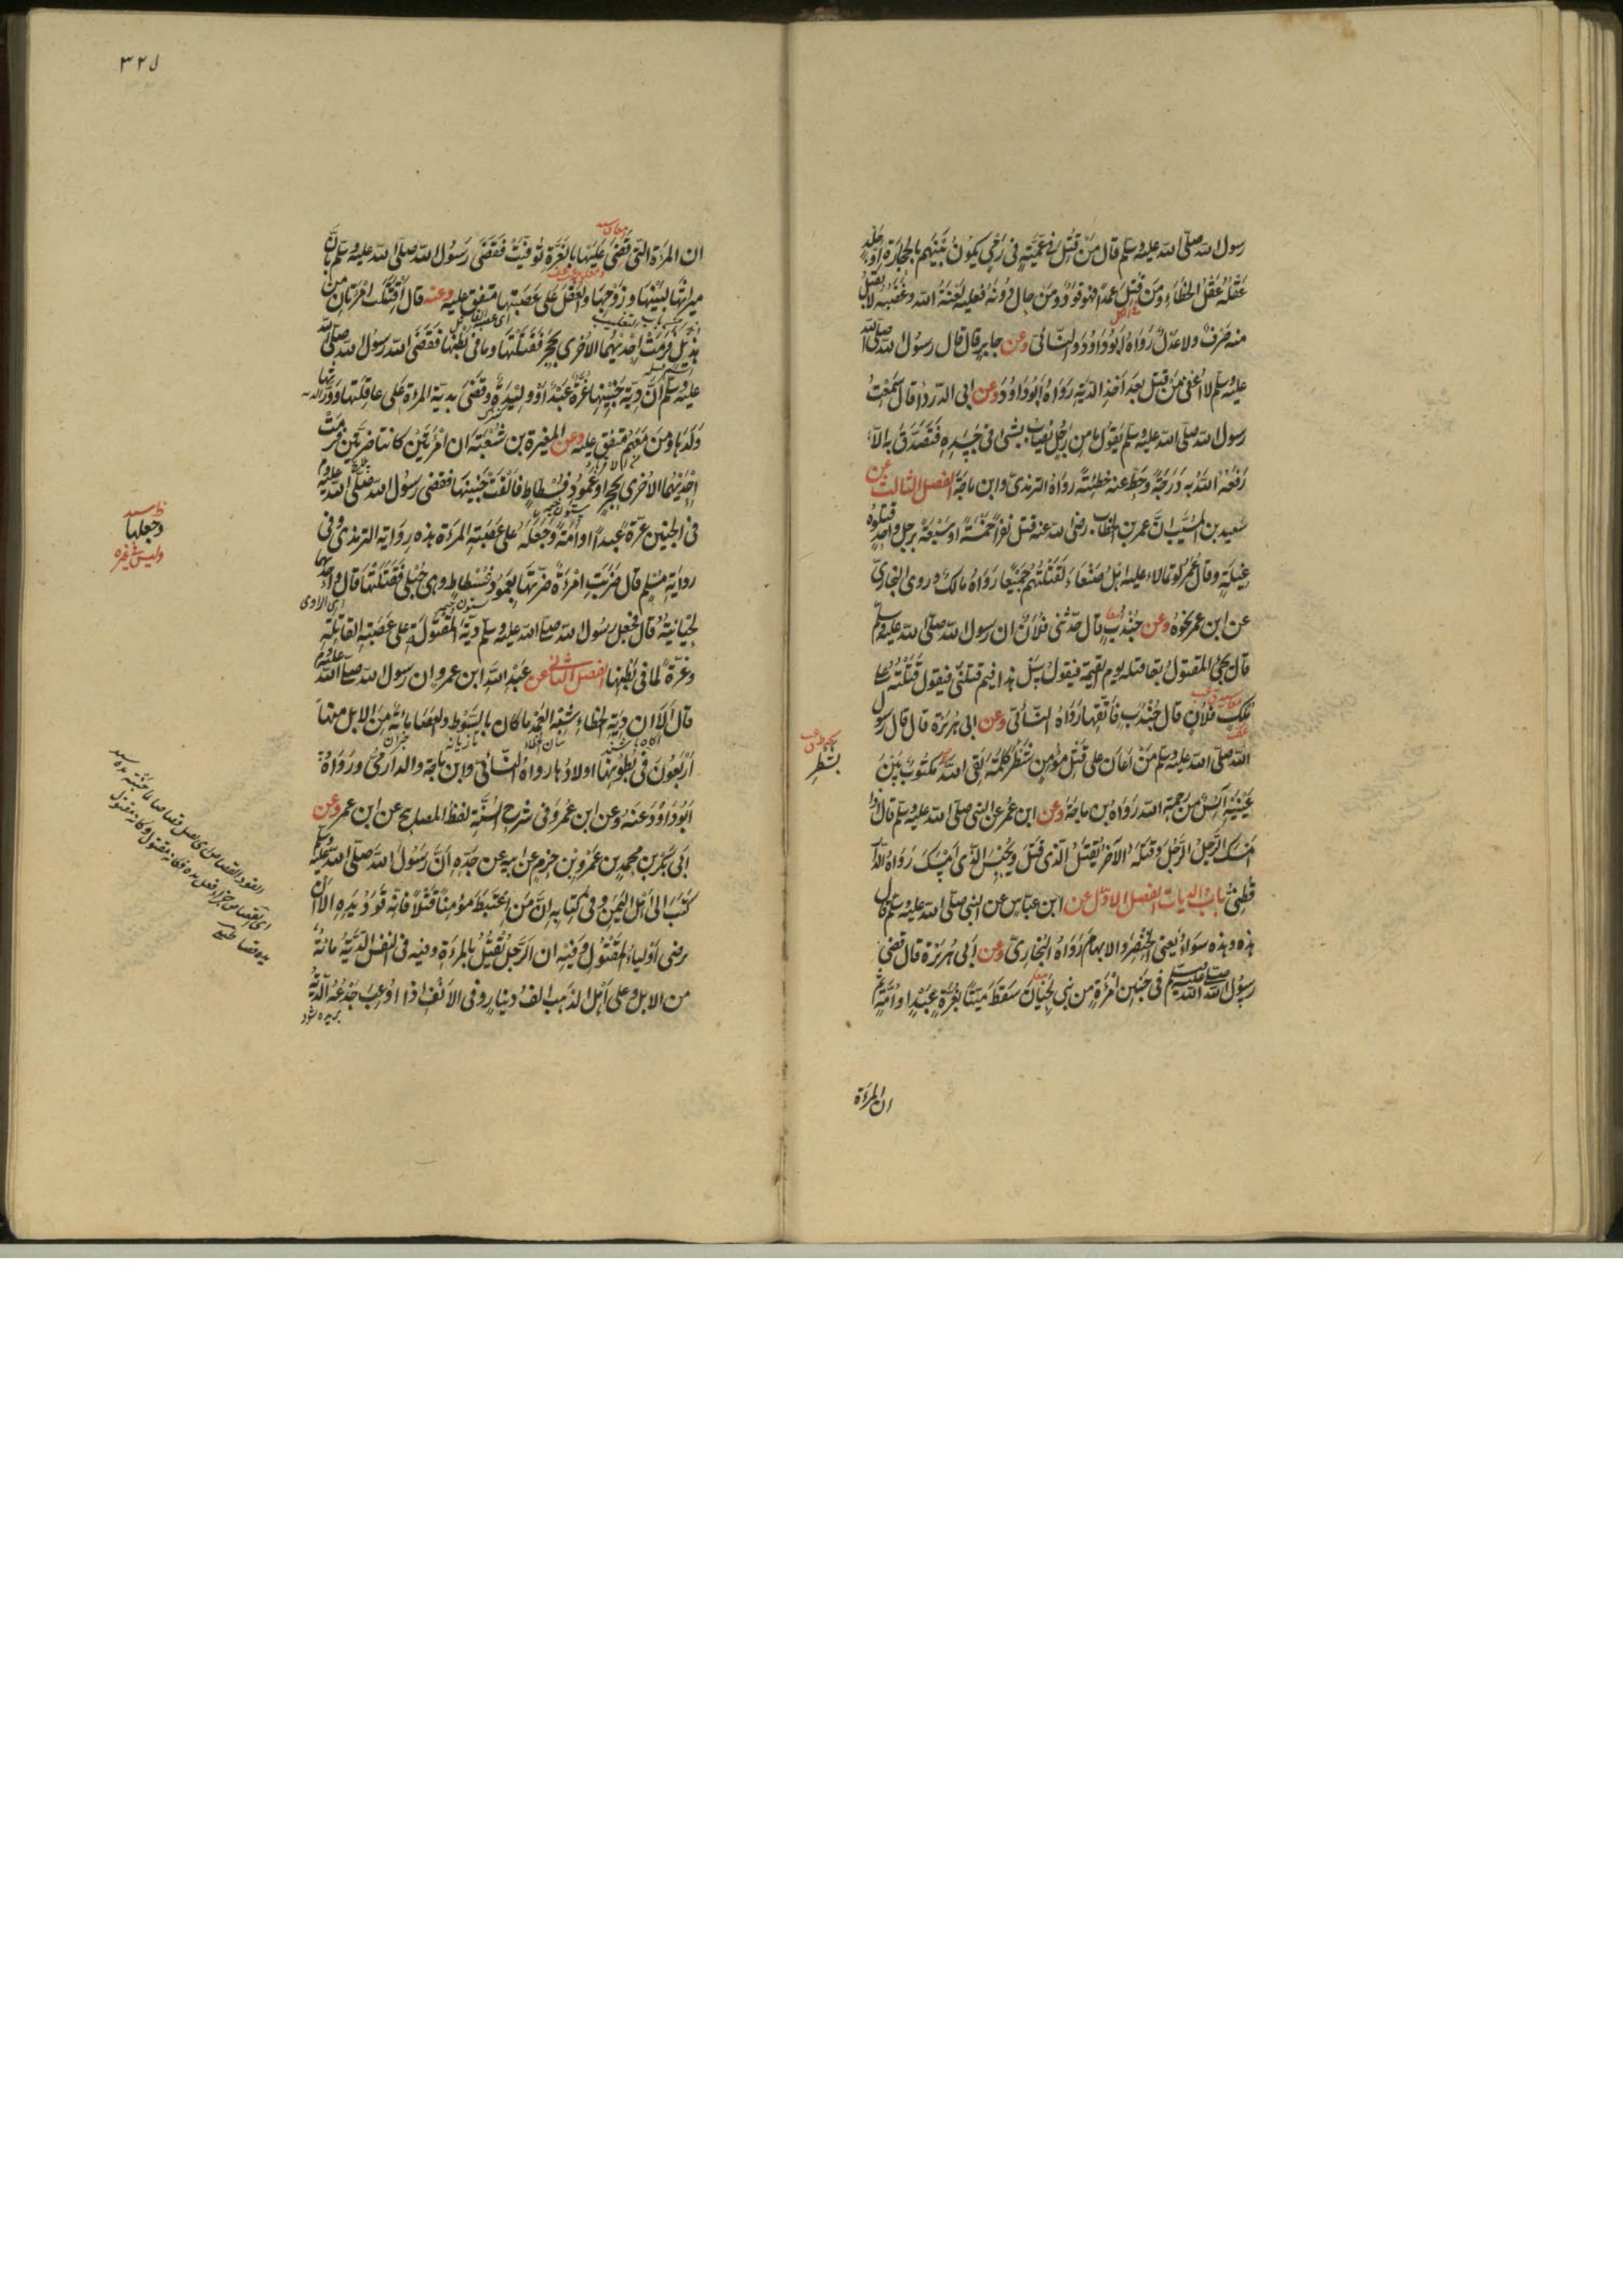 رسول الله صلى الله عليه وسلم قال من قُتِل فى عِمِّيَّةٍ فى رَمْىٍ يكون بينهم بالحجارة او جَلْدٍ
عَقْلُه عَقْلُ الخطاء ومن قُتِل عمدًا فهو قَوَدٌ ومن حال دونه فعليه لعنة الله وغضبه لا يقبل
منه صرفٌ ولا عدلٌ رواه ابوداود والنسائى وعن جابر قال قال رسول الله صلى الله
عليه وسلم لا أُعْفِى من قتل بعد اخذ الدية رواه ابوداود وعن ابى الدرداء قال سمعت
رسول الله صلى الله عليه وسلم يقول ما من رجل يصاب بشئ فى جسده فتصدق به الا
رفعه الله به درجة وحط عنه خطيئة رواه الترمذى وابن ماجة الفصل الثالث عن
سعيد بن المسيب ان عمر بن الخطاب رضى الله عنه قتل نفرًا خمسة او سبعة برجل واحد قتلوه
غيلة وقال عمر لو تمالاء عليه اهل صنعاء لقتلتهم جميعًا رواه مالك وروى البخارى
عن ابن عمر نحوه وعن جندب قال حدثنى فلان ان رسول الله صلى الله عليه وسلم
قال يجئ المقتول بقاتله يوم القيمة فيقول سل هذا فيم قتلنى فيقول قتلته على
ملك فلان قال جندب فاتقها رواه النسائى وعن ابى هريرة قال قال رسول
الله صلى الله عليه وسلم من اعان على قتل مؤمن شطر كلمة لقى الله مكتوب بين
بشطر
عينيه آئس من رحمة الله رواه بن ماجة وعن ابن عمر عن النبى صلى الله عليه وسلم قال اذا
امسك الرجل الرجل وقتله الآخر يقتل الذى قتل ويحبس الذى امسك رواه الدار
قطنى باب الديات الفصل الاول عن ابن عباس عن النبى صلى الله عليه وسلم قال
هذه وهذه سواء يعنى الخنصر والابهام رواه البخارى وعن ابى هريرة قال قضى
رسول الله صلى الله عليه وسلم فى جنين امرءة من بنى لحيان سقط ميتًا بغرة عبد او امة ثم
ان المرءة
٣٢١
ان المرءة التى قضى عليها بالغرة توفيت فقضى رسول الله صلى الله عليه وسلم بان
ميراثها لبنيها وزوجها والعقل على عصبتها متفق عليه وعنه قال اقتتلت امرءتان من
هذيل فرمت احديهما الاخرى بحجر فقتلتها وما فى بطنها فقضى رسول الله صلى الله
عليه وسلم ان دية جنينها غرة عبد او وليدة وقضى بدية المرءة على عاقلتها وورثها
ولدها ومن معهم متفق عليه وعن المغيرة بن شعبة ان امرءتين كانتا ضرتين فرمت
احديهما الاخرى بحجر او عمود فسطاط فالقت جنينها فقضى رسول الله صلى الله عليه وسلم
وجعلها
فى الجنين غرة عبدًا او امة وجعله على عصبة المرءة هذه رواية الترمذى وفى
رواية مسلم قال ضربت امرءة ضرتها بعمود فسطاط وهى حبلى فقتلتها قال واحديهما
لحيانية قال فجعل رسول الله صلى الله عليه وسلم دية المقتولة على عصبة القاتلة
وغرة لما فى بطنها الفصل الثانى عن عبد الله ابن عمرو ان رسول الله صلى الله عليه وسلم
قال الا ان دية الخطاء شبه العمد ما كان بالسوط والعصا مائة من الابل منها
اربعون فى بطونها اولادها رواه النسائى وابن ماجة والدارمى ورواه
ابوداود عنه وعن ابن عمر وفى شرح السنة لفظ المصابيح عن ابن عمر وعن
ابى بكر بن محمد بن عمرو بن حزم عن ابيه عن جده ان رسول الله صلى الله عليه وسلم
كتب الى اهل اليمن وفى كتابه ان من اعتبط مؤمنًا قتلًا فانه قود يده الا ان
يرضى اولياء المقتول وفيه ان الرجل يقتل بالمرءة وفيه فى النفس الدية مائة
من الابل وعلى اهل الذهب الف دينار وفى الانف اذا اوعب جدعه الدية